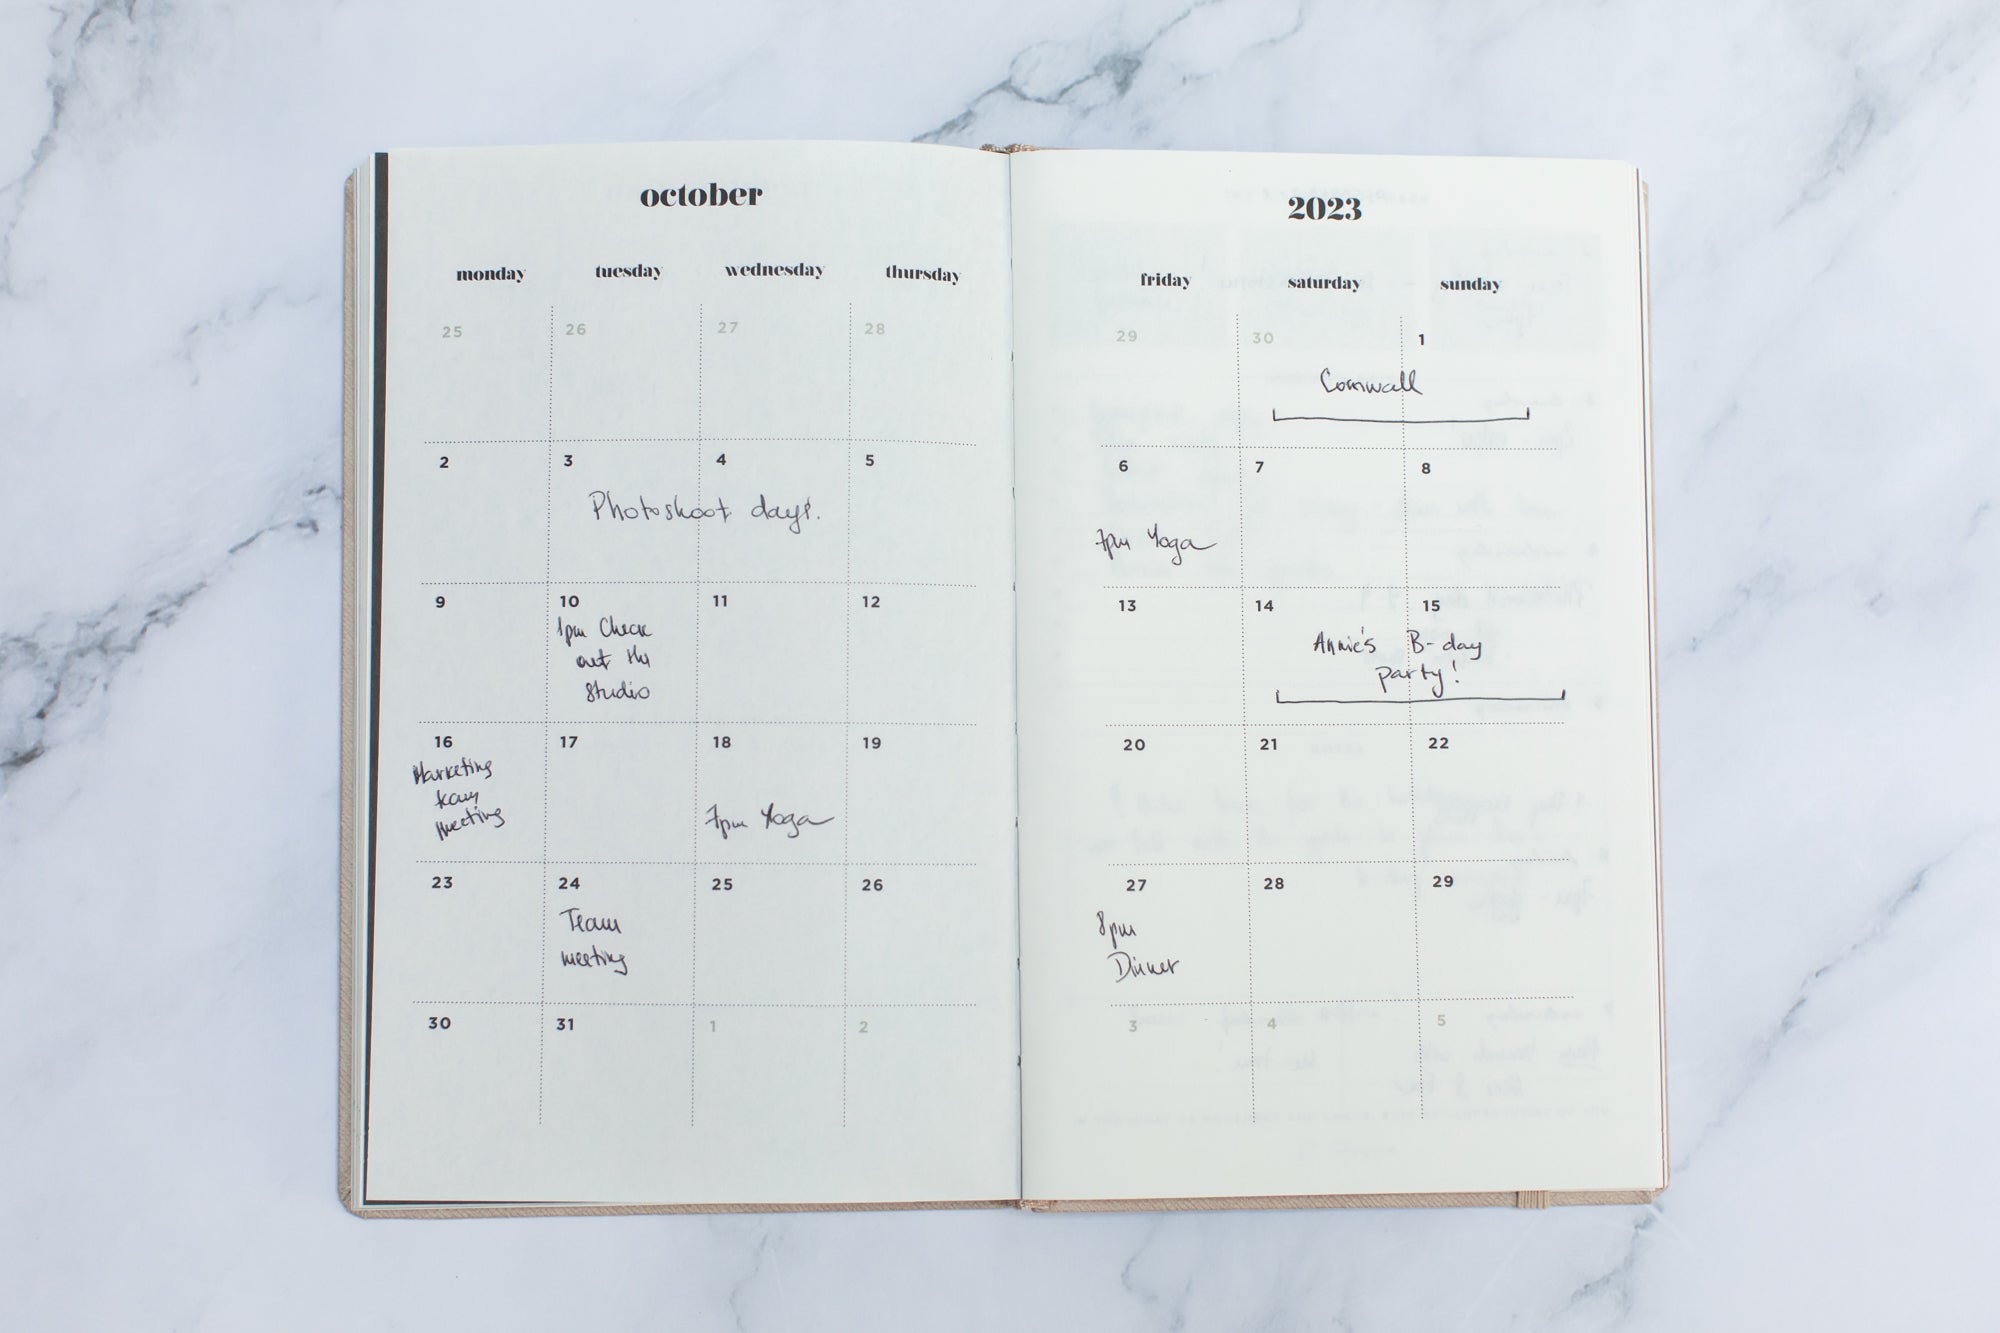 october
2023
monday tuesday wednesday thursday
friday saturday sunday
25 26 27 28
29 30 1
Cornwall
2 3 4 5
Photoshoot days!.
6 7 8
7pm Yoga
9 10 11 12
1pm Check
out the
studio
13 14 15
Annie's B-day
party!
16 17 18 19
Marketing
team
meeting
7pm Yoga
20 21 22
23 24 25 26
Team
meeting
27 28 29
8pm
Dinner
30 31 1 2
3 4 5